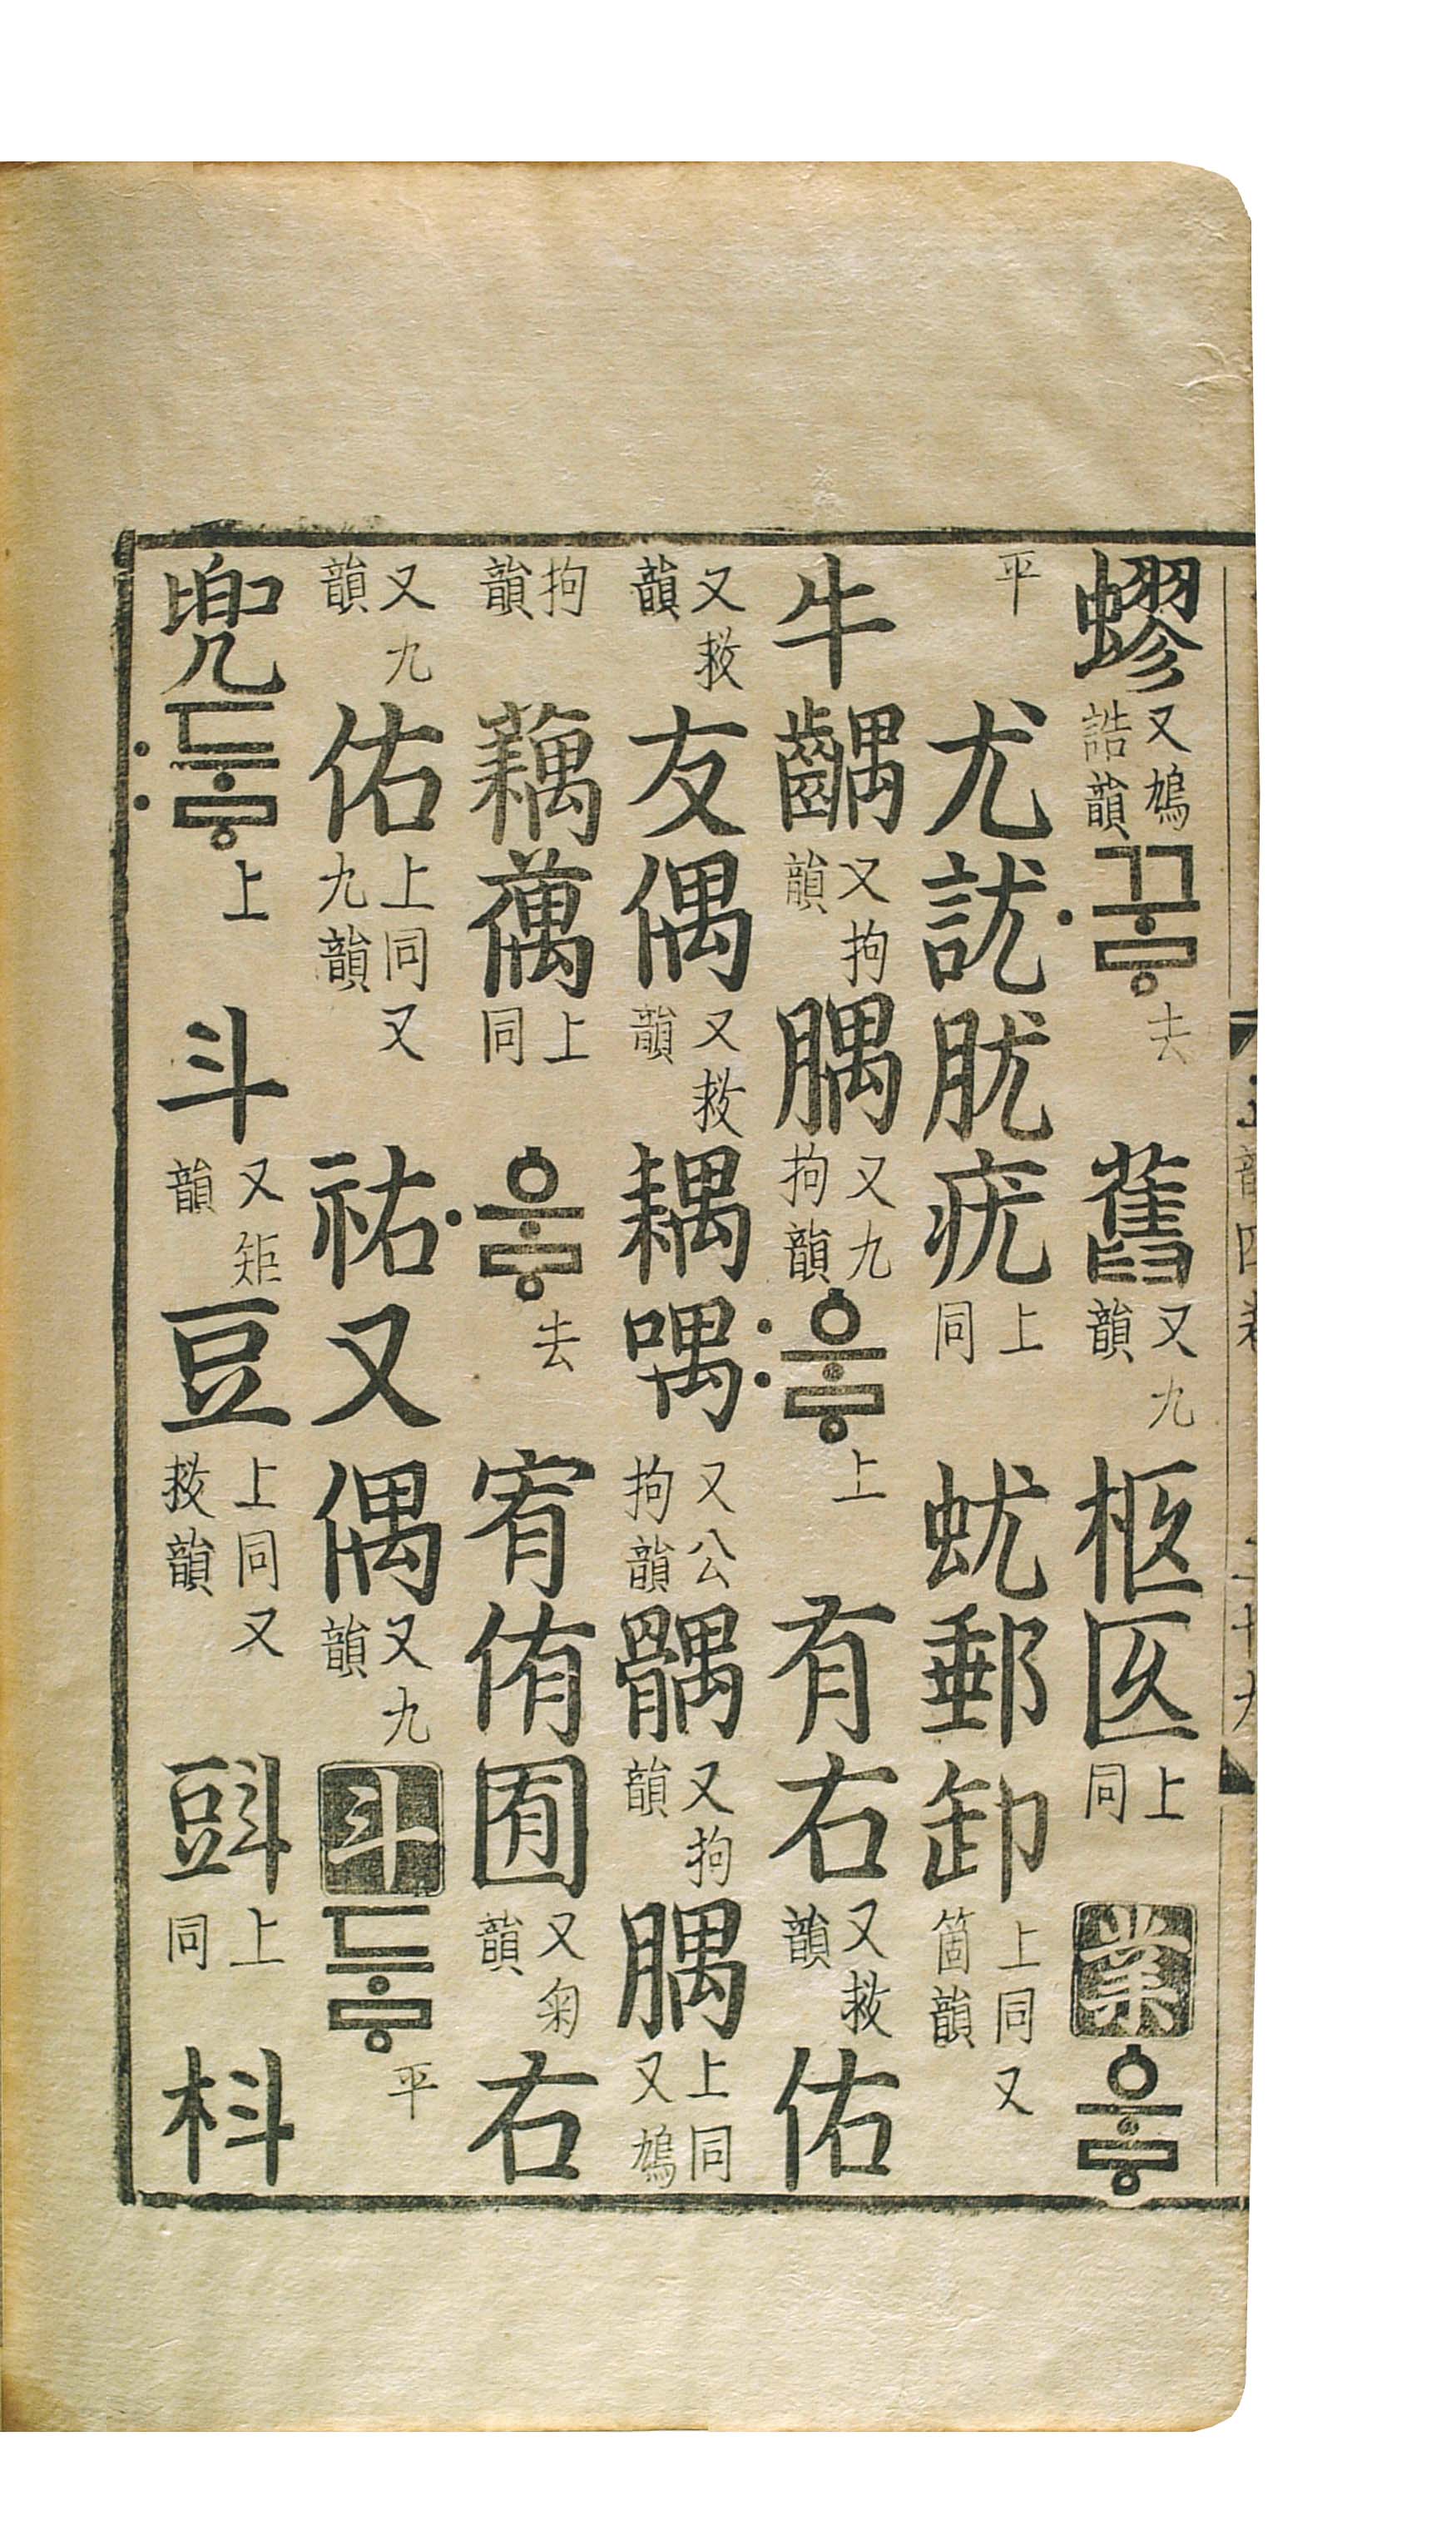 蟉又鳩誥韻·꾸ᇢ去舊又九韻柩匛上同業ᅌᅮᇢ
平尤訧肬疣上同蚘郵卸上同又箇韻
牛齵又拘韻腢又九拘韻:ᅌᅮᇢ上有右又救韻佑
又救韻友偶又救韻耦喁又公拘韻髃又拘韻腢上同又鳩
拘韻藕蕅上同·ᅌᅮᇢ去宥侑囿又菊韻右
又九韻佑上同又九韻祐又偶又九韻斗두ᇢ平
兜:두ᇢ上斗又矩韻豆上同又救韻㪷上同枓